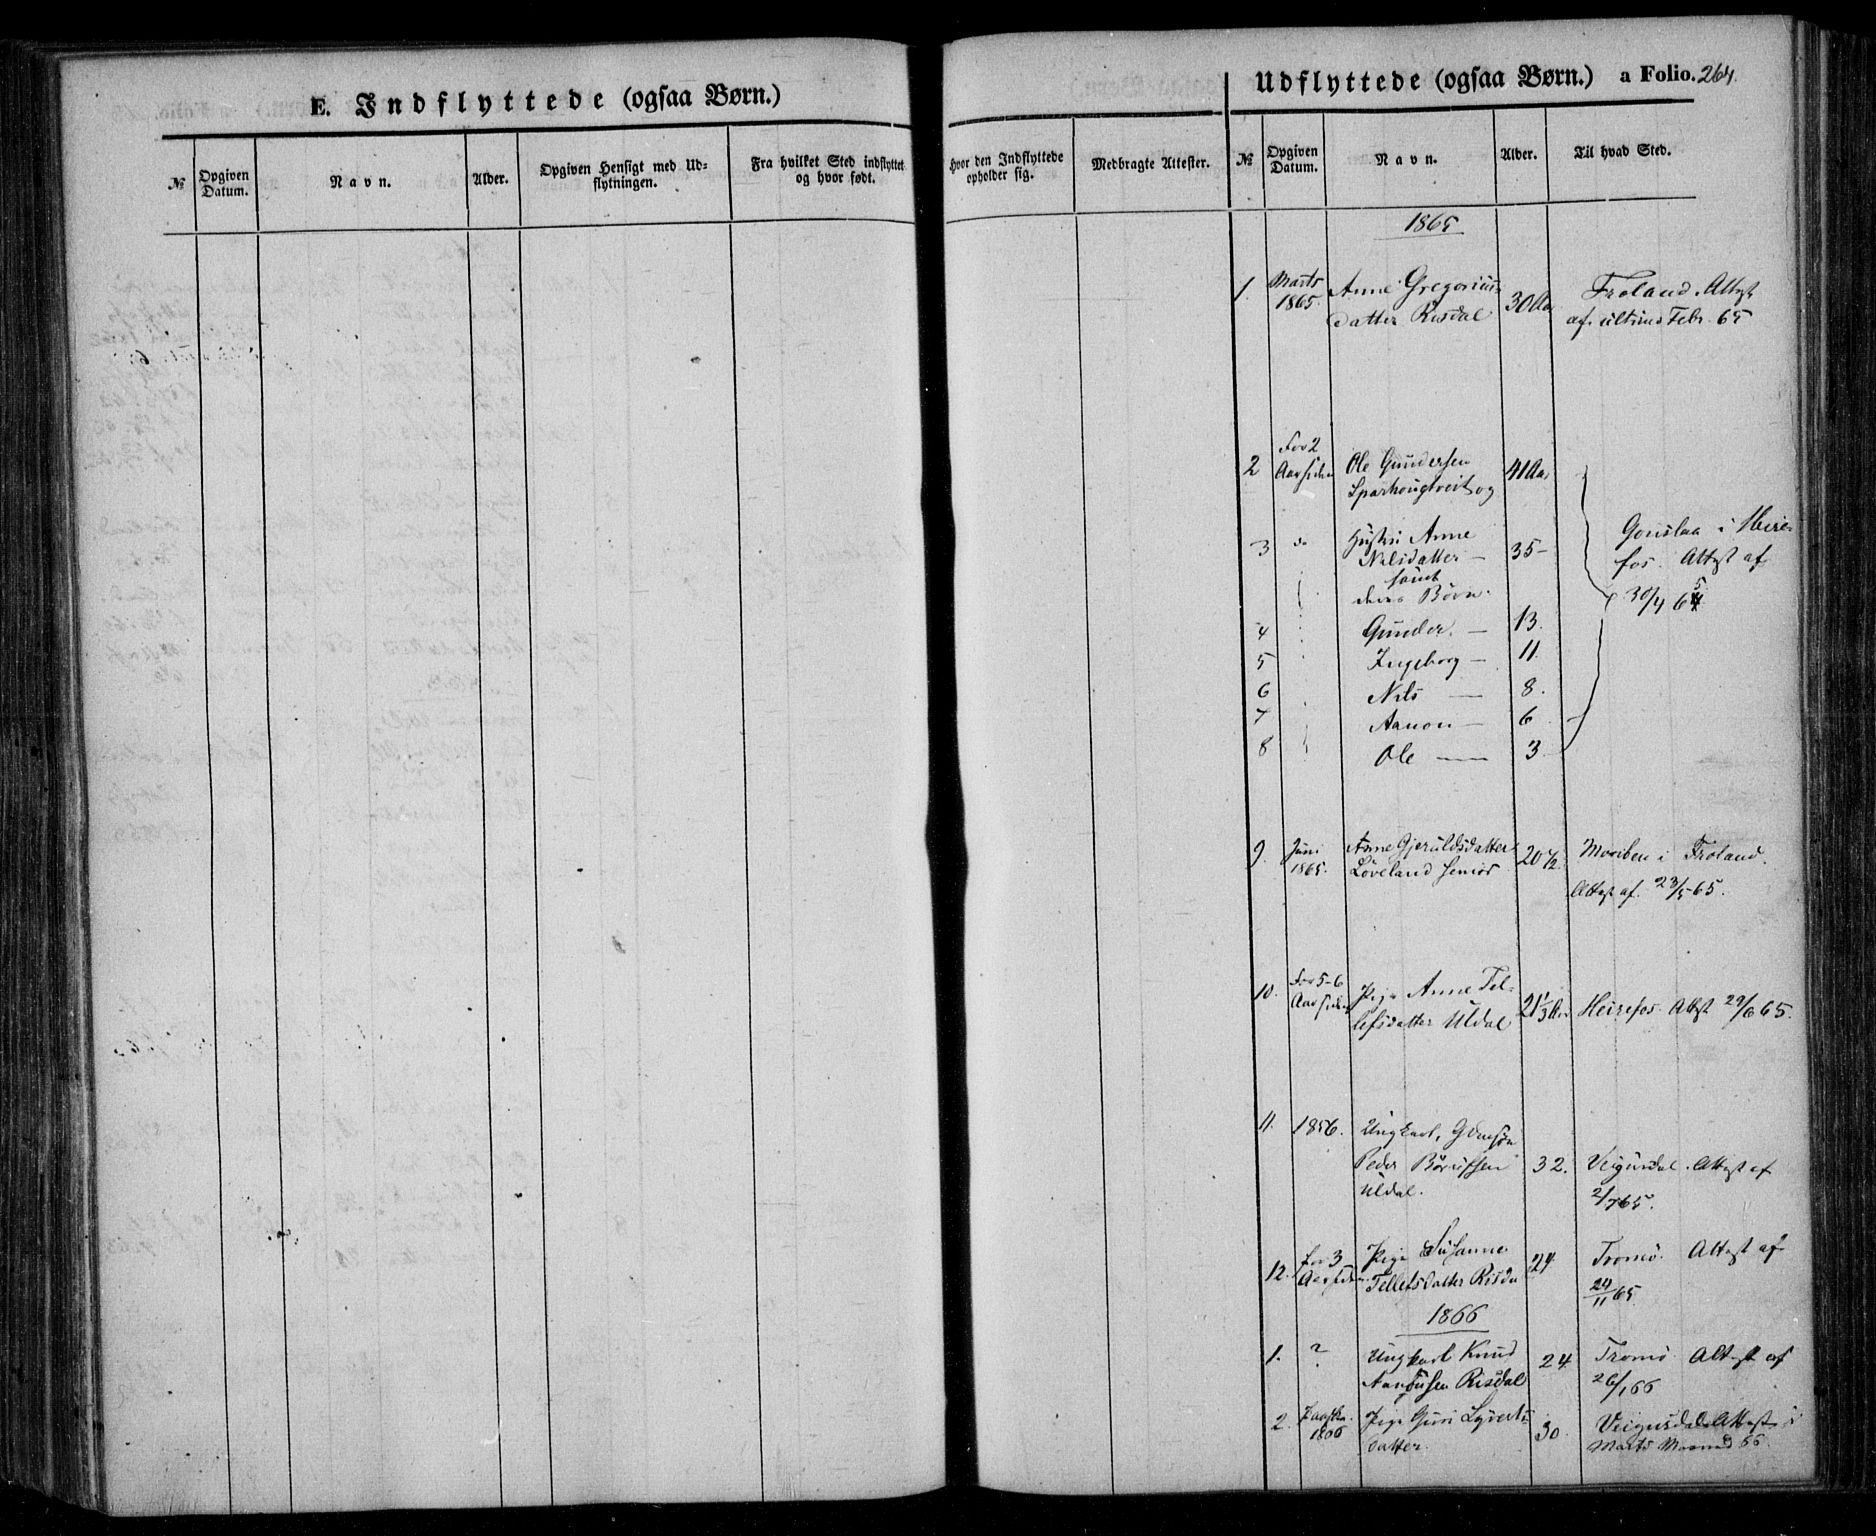 E. Indflyttede (ogsaa Børn.)
№ Opgiven Datum. Navn. Alder. Opgiven Hensigt med Udflytningen. Fra hvilket Sted indflyttet og hvor født.
Hvor den Indflyttede opholder sig. Medbragte Attester.
Udflyttede (ogsaa Børn.) a Folio. 264.
№ Opgiven Datum. Navn. Alder. Til hvad Sted.
1865
1. Marts Anne Gregorius- 30 Aar Froland. Attest
1865. datter Risdal af ultimo Febr. 65
2 For 2 Ole Gundersen 41 Aar
Aar siden Sparhougtveit og
3 do Hustru Anne
Nilsdatter — 35 —
samt
deres Børn.
Gonslaa i Heire-
fos. Attest af
30/4 65
4 Gunder. — 13.
5 Ingeborg — 11.
6 Nils — 8.
7 Aanon — 6
8 Ole — 3
9. Juni Anne Gjeruldsdatter 20 1/2 i Froland.
1865. Løveland senior Attest af 23/5 65.
10. For 5-6 Pige Anne Tel-
Aar siden lefsdatter Uldal 21 1/3 Aar Heirefos. Attest 29/6 65.
11. 1856. Ungkarl,
Peder Børufsen 32. Veigusdal. Attest af
Uldal. 2/7 65.
12. For 3 Pige Susanne 24 Tromø. Attest af
Aar siden Tellefsdatter Risda 24/11 65.
1866
1. ? Ungkarl Knud 24 Tromø Attest af
Risdal 26/1 66
2. Paaske Pige Guri Syverts 30 Veigusdal Attest i
1866 datter. Marts Maaned 66.